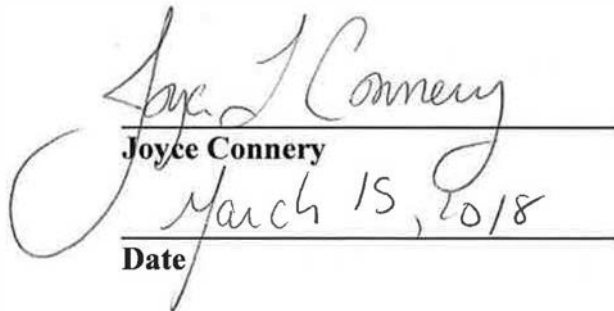 Joyce L Connery
Joyce Connery
March 15, 2018
Date